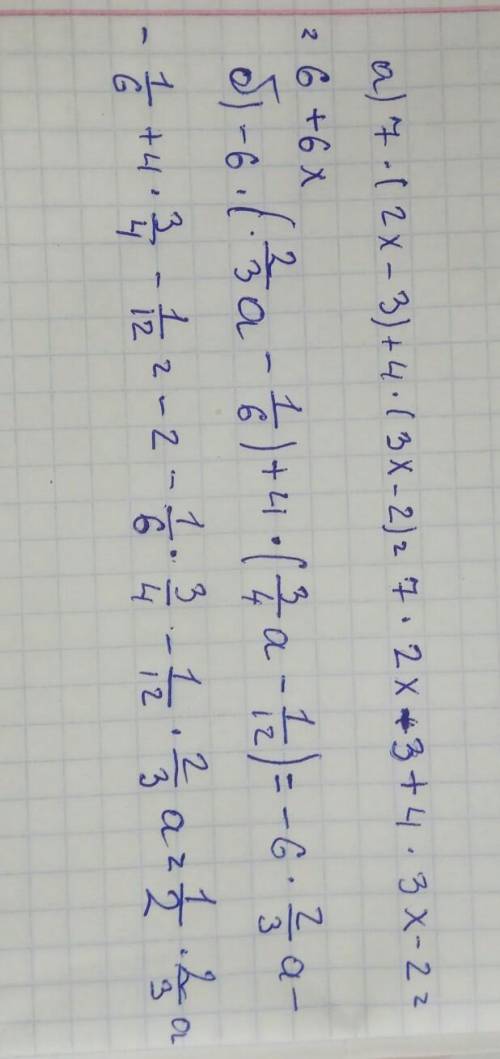 а) 7·(2x-3)+4·(3x-2)= 7·2x-3+4·3x-2=
= 6+6x
б) -6·(·2/3a - 1/6)+4·(3/4a - 1/12)= -6·2/3a -
- 1/6 + 4·3/4 - 1/12 = -2 - 1/6·3/4 - 1/12·2/3a = 1/2·2/3a